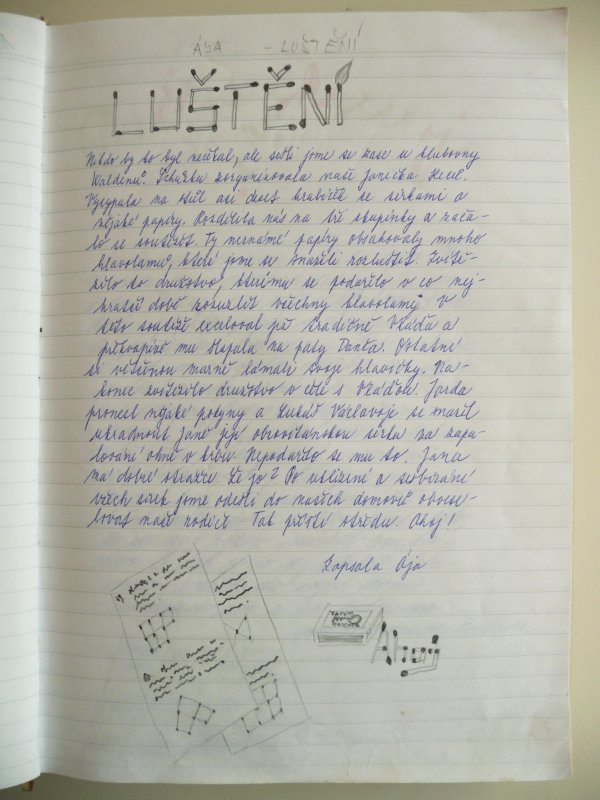 ÁJA - LUŠTĚNÍ
LUŠTĚNÍ
Nikdo by to byl neřekl, ale sešli jsme se zase u klubovny
Waldenů. Schůzku zorganizovala naše Janička
Vysypala na stůl asi deset krabiček se sirkami a
nějaké papíry. Rozdělila nás na tři skupinky a zača-
lo se soutěžit. Ty neznámé papíry obsahovaly mnoho
hlavolamů, které jsme se snažili rozluštit. Zvítě-
zilo to družstvo, kterému se podařilo v co nej-
kratší době rozluštit všechny hlavolamy. V
této soutěži exceloval již tradičně Vláďa a
překvapivě mu šlapala na paty Danča. Ostatní
si většinou marně lámali svoje hlavičky. Na-
konec zvítězilo družstvo v čele s Vláďou. Jarda
pronesl nějaké pokyny a Lukáš Václavoje se snažil
ukradnout Janě její obrovitánskou sirku na zapa-
lování ohně v krbu. Nepodařilo se mu to. Jana
má dobré strážce. Že jo? Po uklizení a sesbírání
všech sirek jsme odešli do našich domovů obvese-
lovat naše rodiče. Tak příští středu. Ahoj!
Zapsala Ája
Ahoj